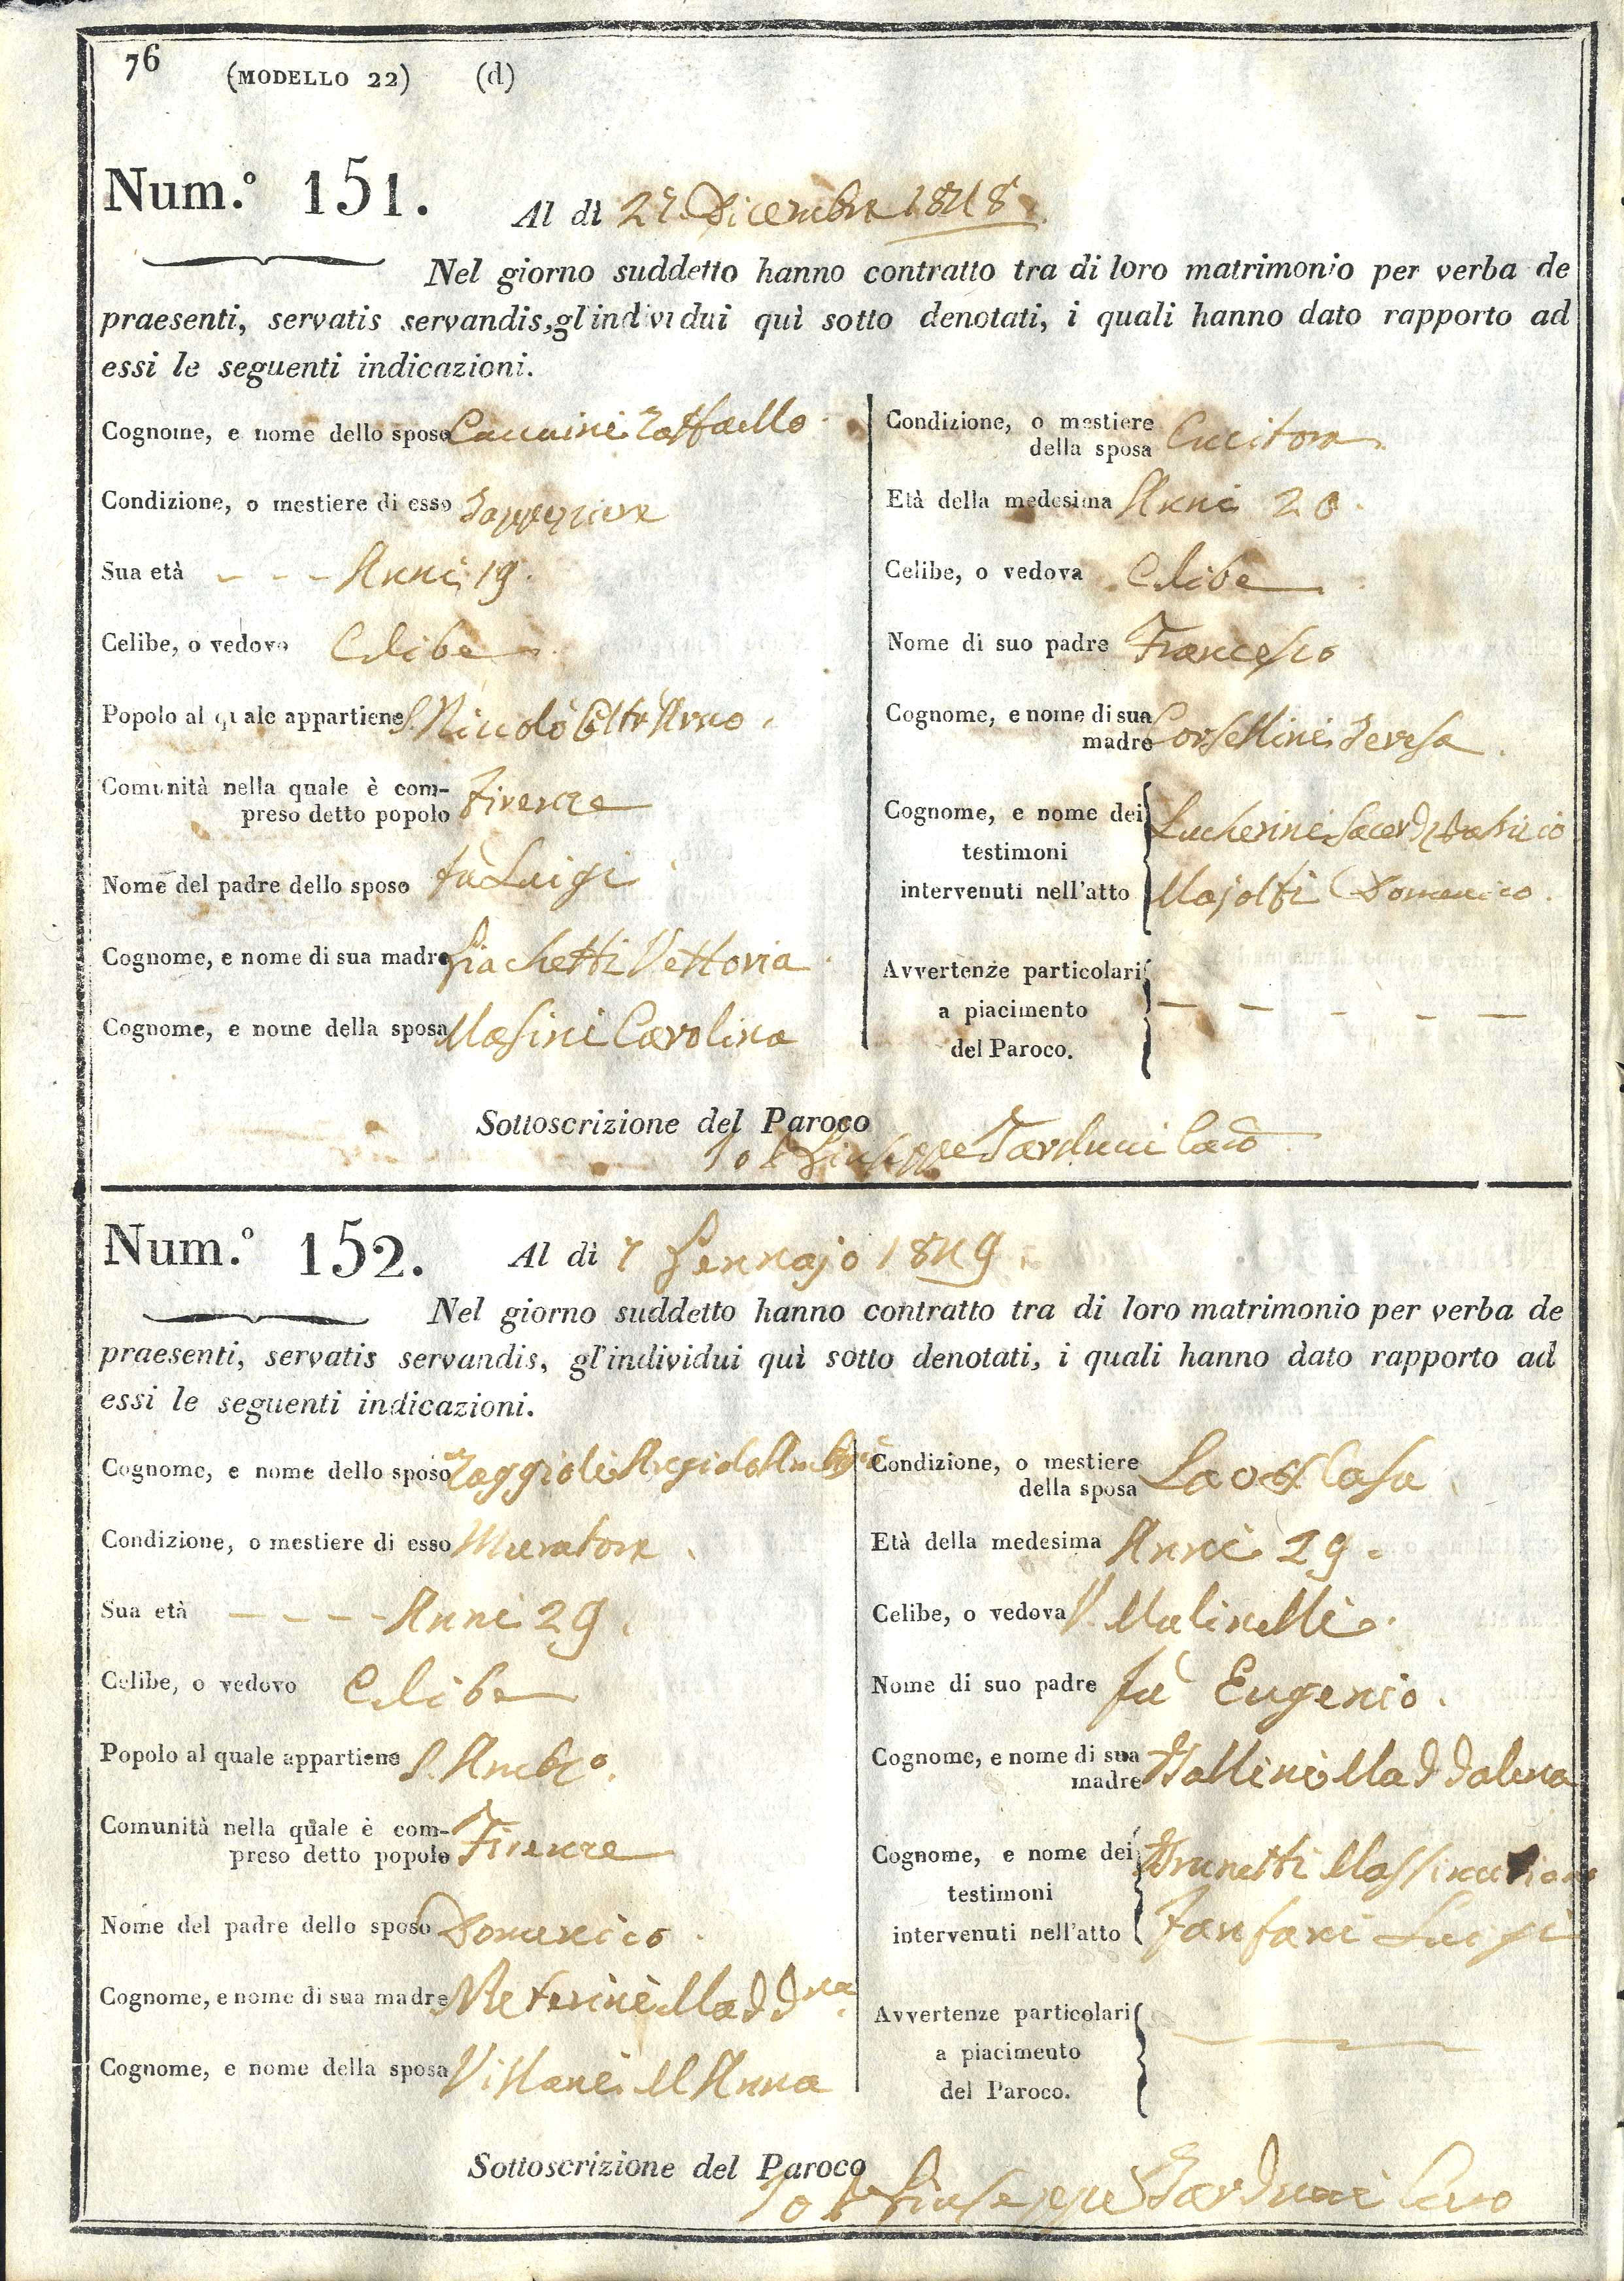 76 (MODELLO 22) (d)
Num.° 151. Al dì 27 Dicembre 1848.
Nel giorno suddetto hanno contratto tra di loro matrimonio per verba de
praesenti, servatis servandis, gl'individui quì sotto denotati, i quali hanno dato rapporto ad
essi le seguenti indicazioni.
Cognome, e nome dello sposo Raffaello
Condizione, o mestiere di esso
Sua età - - - Anni 19.
Celibe, o vedovo Celibe
Popolo al quale appartiene S. Niccolò Oltr'Arno.
Comunità nella quale è com-
preso detto popolo Firenze
Nome del padre dello sposo fù Luigi
Cognome, e nome di sua madre Giachetti Vettoria
Cognome, e nome della sposa Masini Carolina
Condizione, o mestiere
della sposa Cucitora
Età della medesima Anni 20.
Celibe, o vedova Celibe
Nome di suo padre Francesco
Cognome, e nome di sua
madre Corsellini Teresa
Cognome, e nome dei Lucherini Sacerd.
testimoni
intervenuti nell'atto Majolfi Domenico.
Avvertenze particolari
a piacimento - - - - -
del Paroco.
Sottoscrizione del Paroco
Io P. Giuseppe Tarducci
Num.° 152. Al dì 7 Gennajo 1849.
Nel giorno suddetto hanno contratto tra di loro matrimonio per verba de
praesenti, servatis servandis, gl'individui quì sotto denotati, i quali hanno dato rapporto ad
essi le seguenti indicazioni.
Cognome, e nome dello sposo Raggioli Angiolo
Condizione, o mestiere di esso Muratore
Sua età - - - - Anni 29.
Celibe, o vedovo Celibe
Popolo al quale appartiene S. Ambr°.
Comunità nella quale è com-
preso detto popolo Firenze
Nome del padre dello sposo Domenico
Cognome, e nome di sua madre Madd.na
Cognome, e nome della sposa Villani M Anna
Condizione, o mestiere
della sposa Casa
Età della medesima Anni 29.
Celibe, o vedova V. Malinelli.
Nome di suo padre fù Eugenio.
Cognome, e nome di sua
madre Ballini Maddalena
Cognome, e nome dei Brunetti
testimoni
intervenuti nell'atto Fanfani Luigi
Avvertenze particolari
a piacimento
del Paroco.
Sottoscrizione del Paroco
Io P. Giuseppe Tarducci